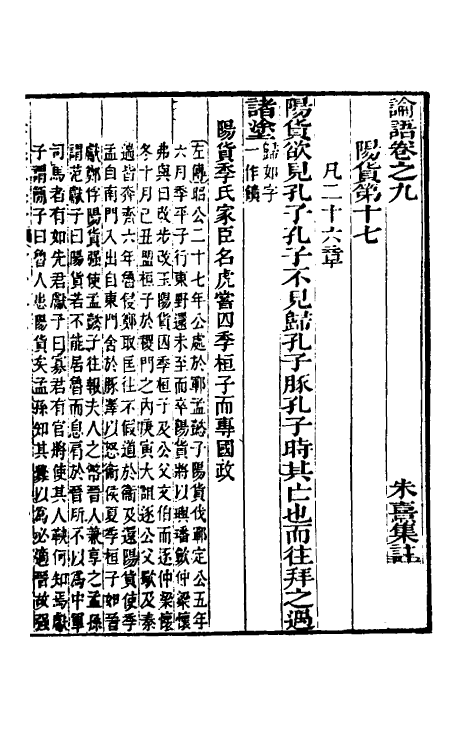 論語卷之九　朱熹集註
陽貨第十七
凡二十六章
陽貨欲見孔子孔子不見歸孔子豚孔子時其亡也而往拜之遇
諸塗歸如字一作饋
陽貨季氏家臣名虎嘗囚季桓子而專國政
左傳昭公二十七年公處於鄆孟懿子陽貨伐鄆定公五年
六月季平子行東野還未至而卒陽貨將以璵璠斂仲梁懷
弗與曰改步改玉陽貨囚季桓子及公父文伯而逐仲梁懷
冬十月己丑盟桓子於稷門之內庚寅大詛逐公父歜及秦
遄皆奔齊六年魯侵鄭取匡往不假道於衛及還陽貨使季
孟自南門入出自東門舍於豚澤以怒衛侯夏季桓子如晉
獻鄭俘陽貨強使孟懿子往報夫人之幣晉人兼享之孟孫
謂范獻子曰陽貨若不能居魯而息肩於晉所不以為中軍
司馬者有如先君獻子曰寡君有官將使其人鞅何知焉獻
子謂簡子曰魯人患陽貨矣孟孫知其釁以為必適晉故強